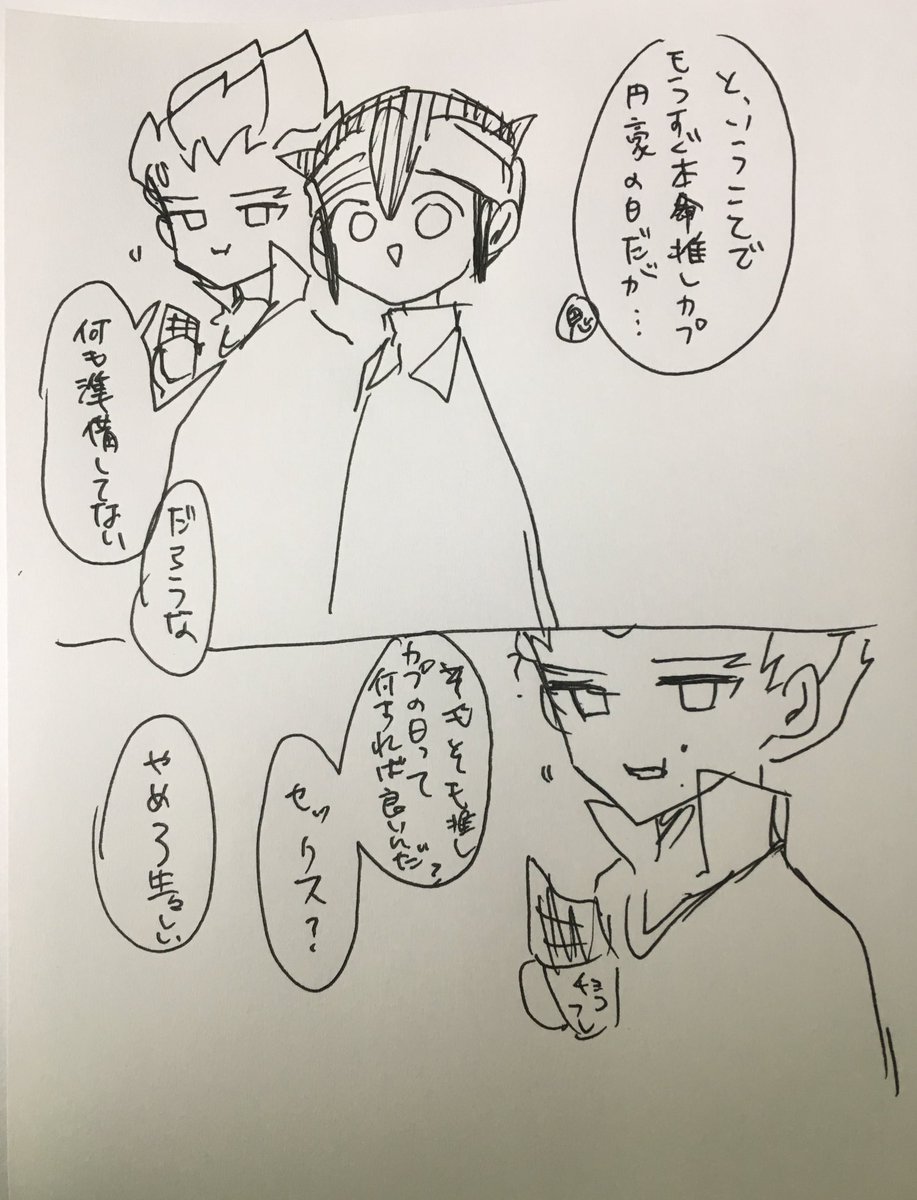 と、いうことで
もうすぐ本命推しカプ
円豪の日だが…
鬼
何も準備してない
だろうな
そもそも推し
カプの日って
何ちれば良いんだ?
セックス?
やめろ生々しい
チョコ
フレ